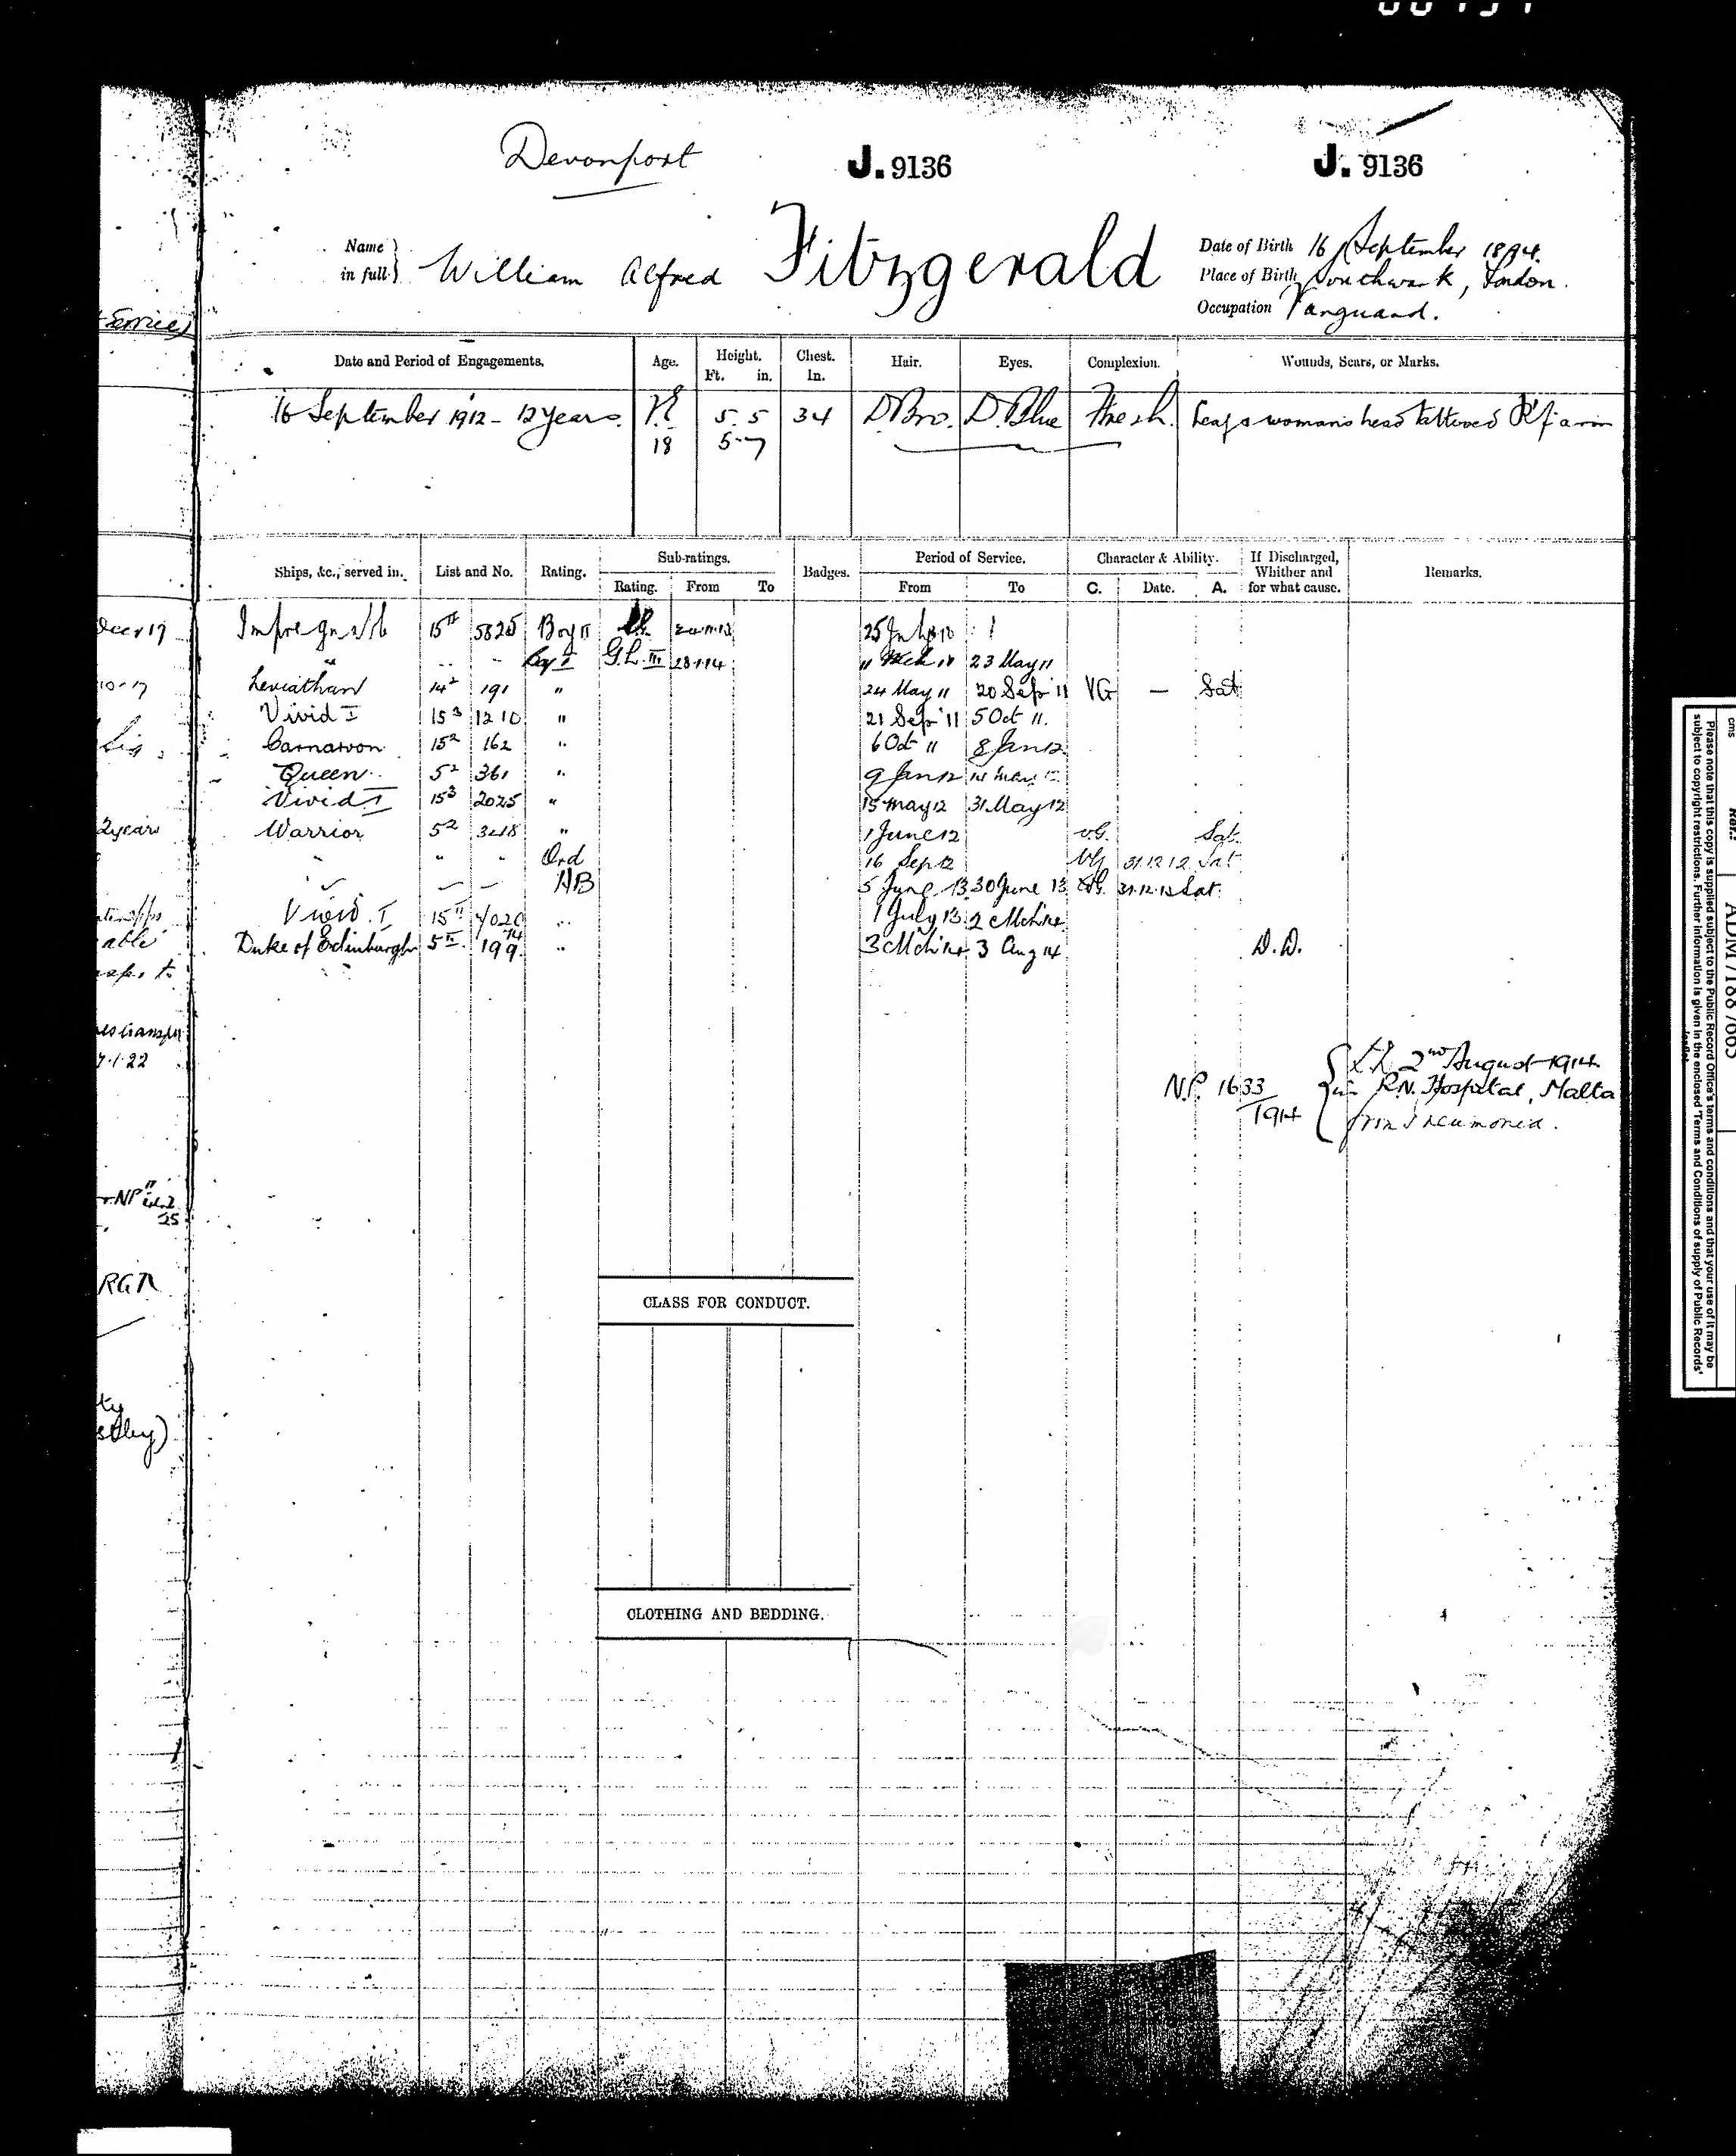 Devonport
J. 9136
J. 9136
Name in full } William Alfred Fitzgerald
Date of Birth 16 September 1894.
Place of Birth Southwark, London.
Occupation Vanguard.
Services
Date and Period of Engagements. Age. Height. Ft. in. Chest. In. Hair. Eyes. Complexion. Wounds, Scars, or Marks.
16 September 1912 - 12 years. 5. 5 34 D. Bro. D. Blue Fresh. womans head tattooed arm
18 5-7
Ships, &c., served in. List and No. Rating. Sub-ratings. Rating. From To Badges. Period of Service. From To Character & Ability. C. Date. A. If Discharged, Whither and for what cause. Remarks.
Impregnable 15 II 5825 Boy II 25 July 10
" .. .. Boy I G.L. III 28.1.14 23 May 11
Leviathan 14² 191 " 24 May 11 20 Sep 11 VG — Sat
Vivid I 15³ 1210 " 21 Sep 11 5 Oct 11.
Carnarvon 15² 162 " 6 Oct 11 8 Jan 12
Queen 5² 361 " 9 Jan 12 14 May 12
Vivid I 15³ 2025 " 15 May 12 31 May 12
Warrior 5² " 1 June 12 V.G. Sat.
" " " Ord 16 Sep 12 VG 31.12.12 Sat
AB 5 June 13 30 June 13 VG. 31.12.13 Sat.
Vivid. I 15 II 4020 .. 1 July 13 2 Mch 14
Duke of Edinburgh 5 II. 199 " 3 Mch 14 3 Aug 14 D.D.
N.P. 1633/1914 { 2nd August 1914
in R.N. Hospital, Malta
from Pneumonia.
2 years
able
7.1.22
25
RGN
CLASS FOR CONDUCT.
CLOTHING AND BEDDING.
Please note that this copy is supplied subject to the Public Record Office's terms and conditions and that your use of it may be
subject to copyright restrictions. Further information is given in the enclosed 'Terms and Conditions of supply of Public Records'
cms
Ref.:
ADM / 188 / 665